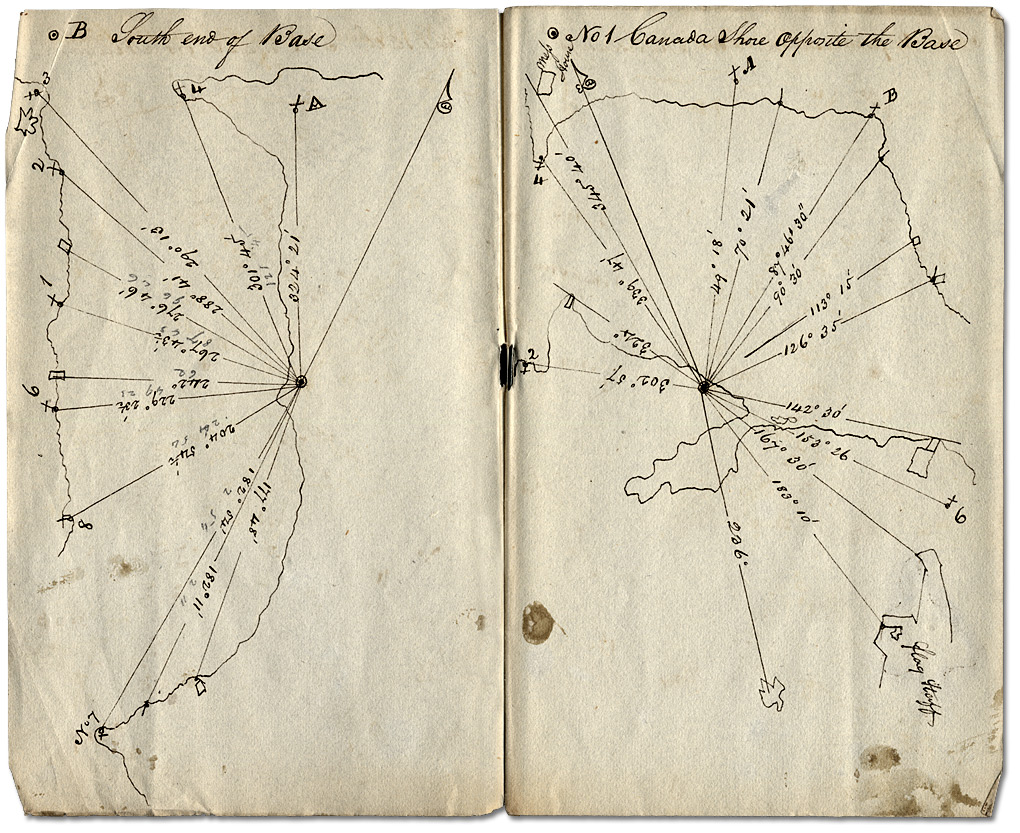 ⊙ B South end of Base
3
4
A
2
290° 13'
301° 45'
324° 21'
288° 41'
1
276° 46'
267° 43½'
6
242°
229° 23½'
204° 54½'
8
182° 54'
177° 48'
182° 11'
No 7
⊙ No 1 Canada Shore Opposite the Base
A
B
4
345° 40'
339° 47'
49° 18'
70° 21'
87° 46' 30"
90° 30'
113° 15'
126° 35'
324°
2
302° 57'
142° 30'
153° 26
167° 30'
183° 10'
6
236°
Flag Staff